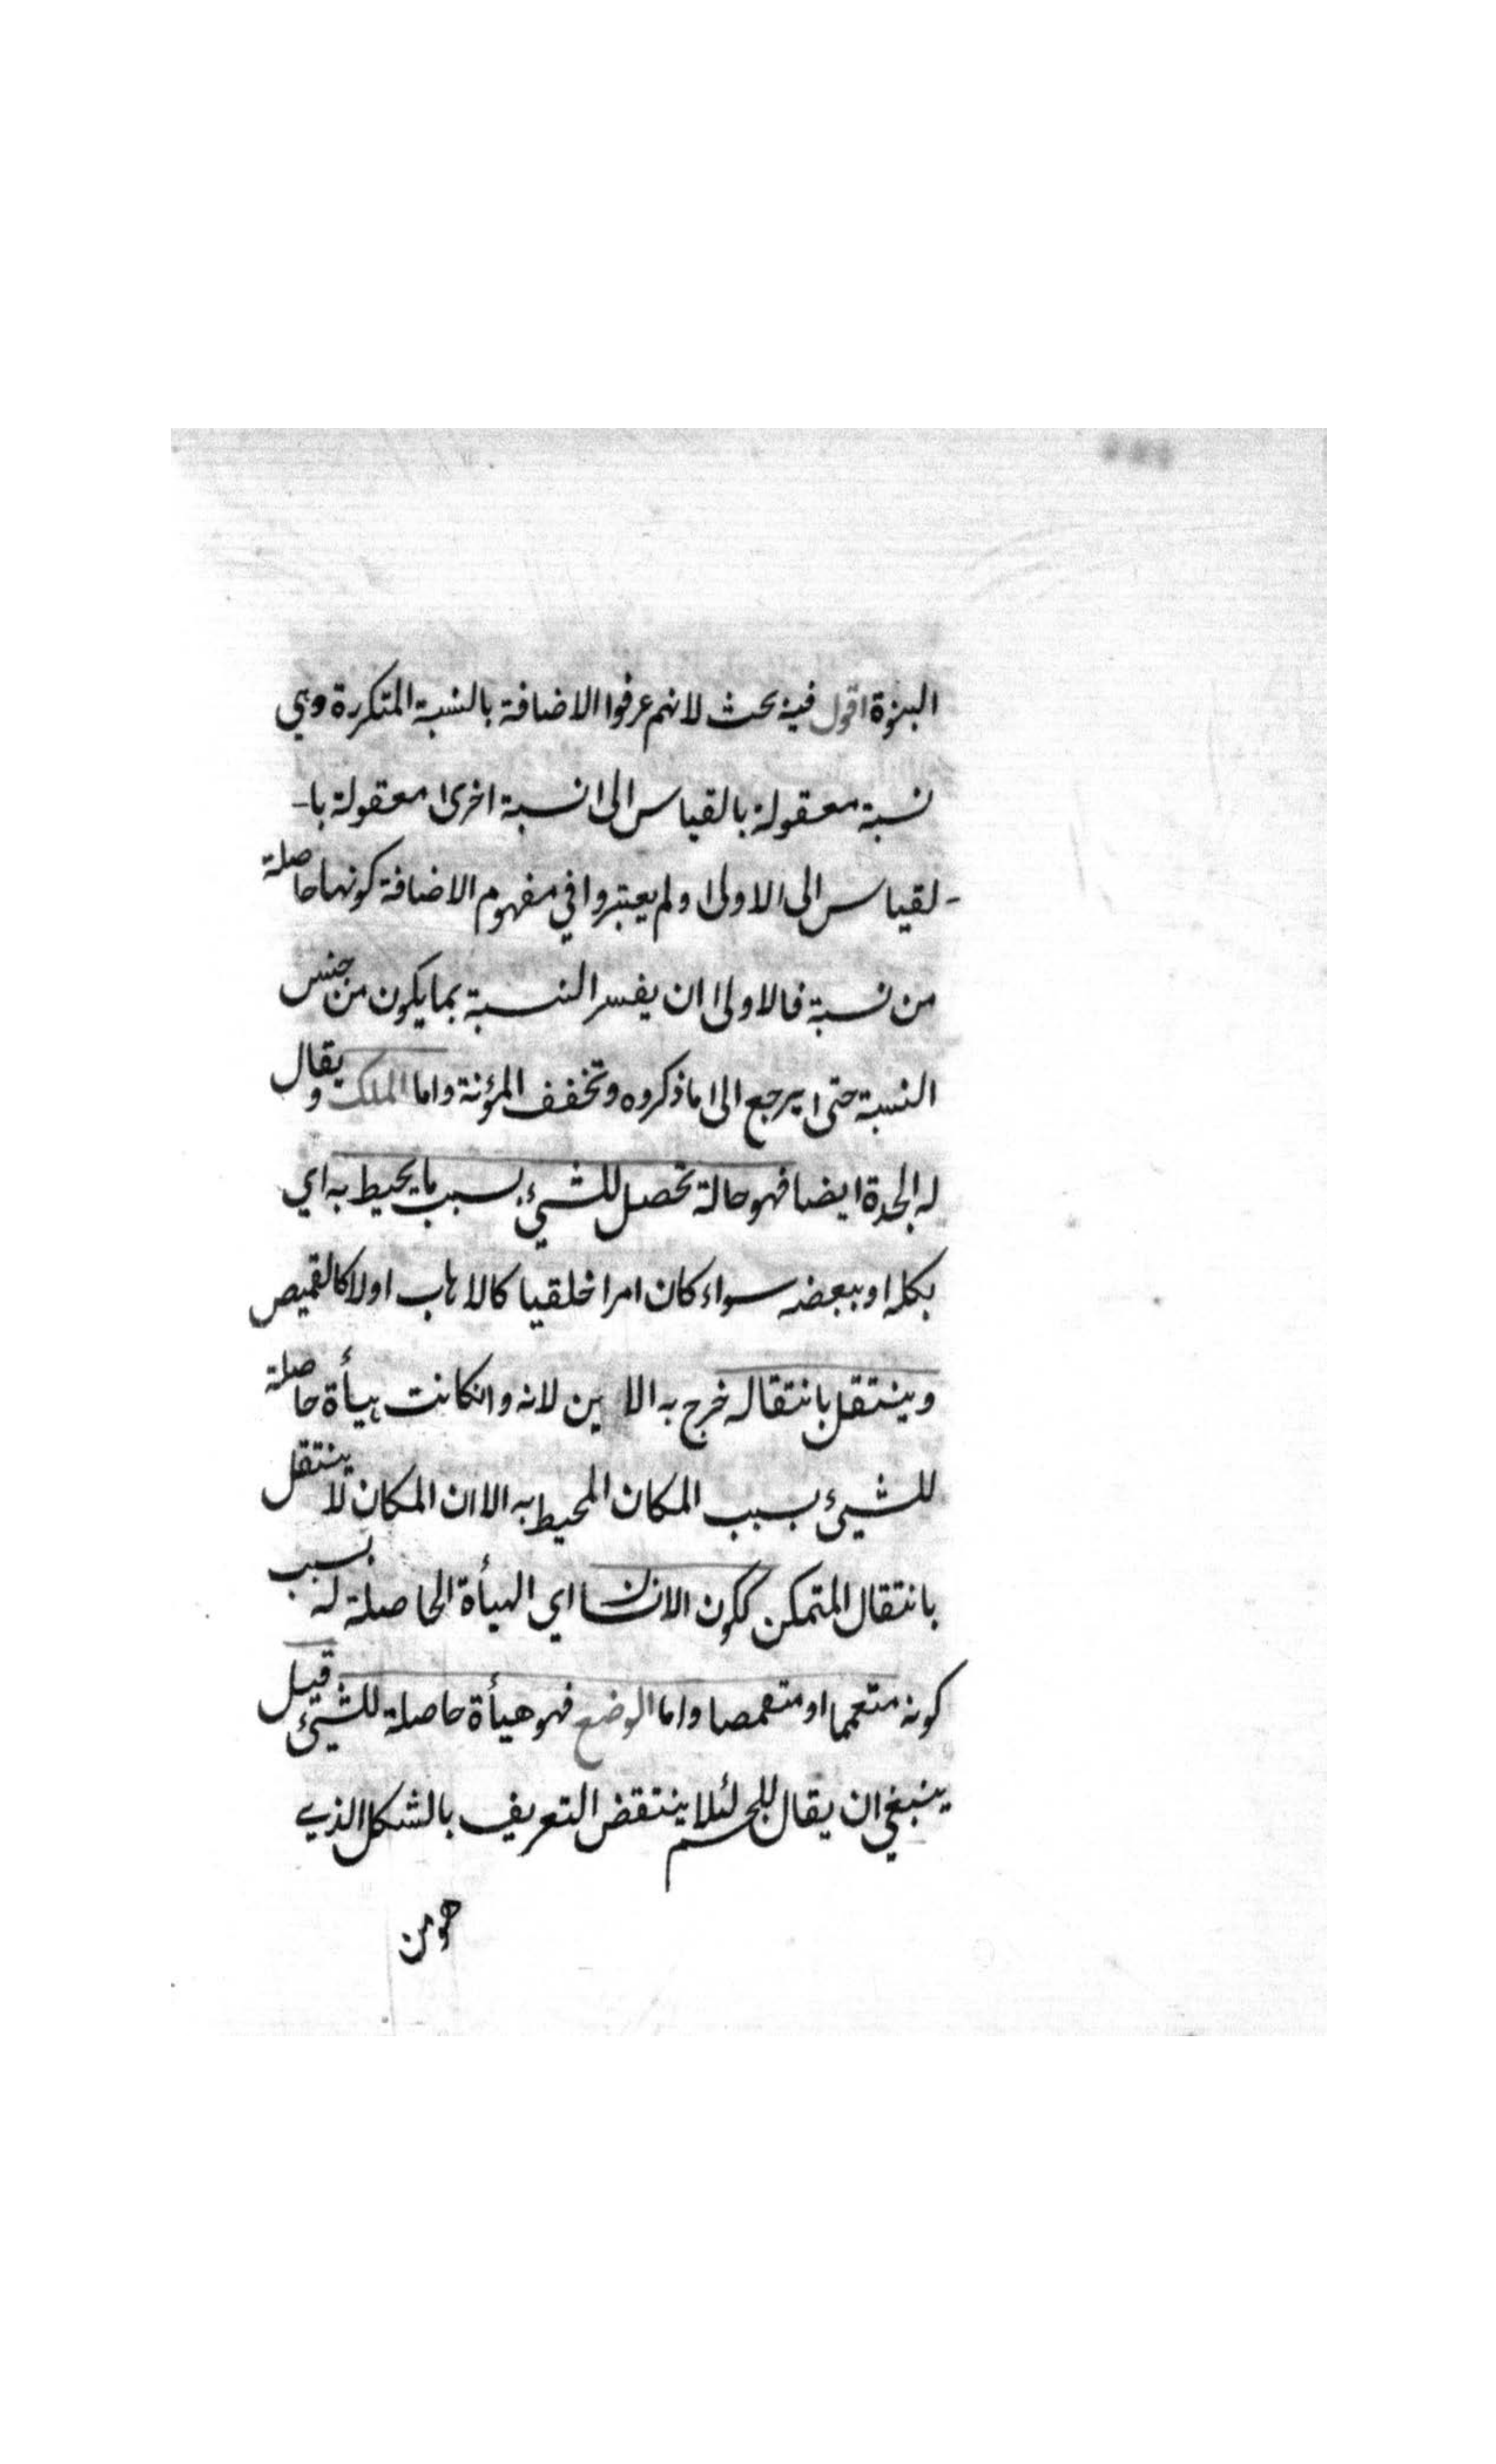 البنوة اقول فيه بحث لانهم عرفوا الاضافة بالنسبة المتكررة وهي
نسبة معقولة بالقياس الى نسبة اخرى معقولة با-
-لقياس الى الاولى ولم يعتبروا في مفهوم الاضافة كونها حاصلة
من نسبة فالاولى ان يفسر النسبة بما يكون من جنس
النسبة حتى يرجع الى ما ذكروه وتخفف المؤنة واما الملك ويقال
له الجدة ايضا فهو حالة تحصل للشيئ بسبب ما يحيط به اي
بكله او ببعضه سواء كان امرا خلقيا كالاهاب او لا كالقميص
وينتقل بانتقاله خرج به الاين لانه وانكانت هيأة حاصلة
للشيئ بسبب المكان المحيط به الا ان المكان لا ينتقل
بانتقال المتمكن ككون الانسان اي الهيأة الحاصلة له بسبب
كونه متعمما او متقمصا واما الوضع فهو هيأة حاصلة للشيئ قيل
ينبغي ان يقال للجسم لئلا ينتقض التعريف بالشكل الذي
هو من